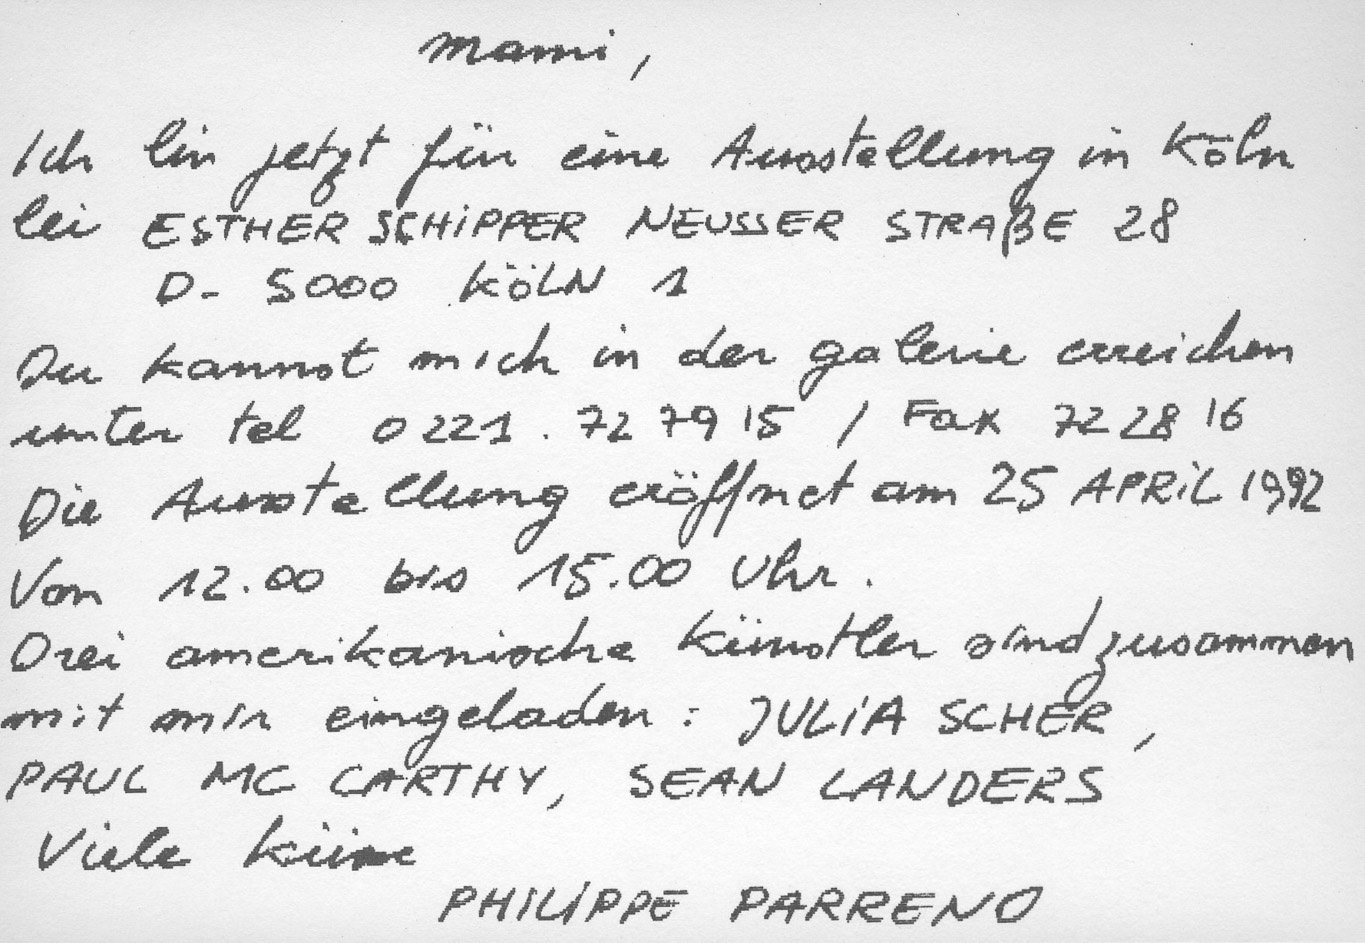 Mami,
Ich bin jetzt für eine Ausstellung in Köln
bei ESTHER SCHIPPER NEUSSER STRAßE 28
D- 5000 KÖLN 1
Du kannst mich in der galerie erreichen
unter tel 0221. 72 79 15 / Fax 72 28 16
Die Ausstellung eröffnet am 25 APRIL 1992
Von 12.00 bis 15.00 Uhr.
Drei amerikanische Künstler sind zusammen
mit mir eingeladen : JULIA SCHER,
PAUL MC CARTHY, SEAN LANDERS
Viele
PHILIPPE PARRENO